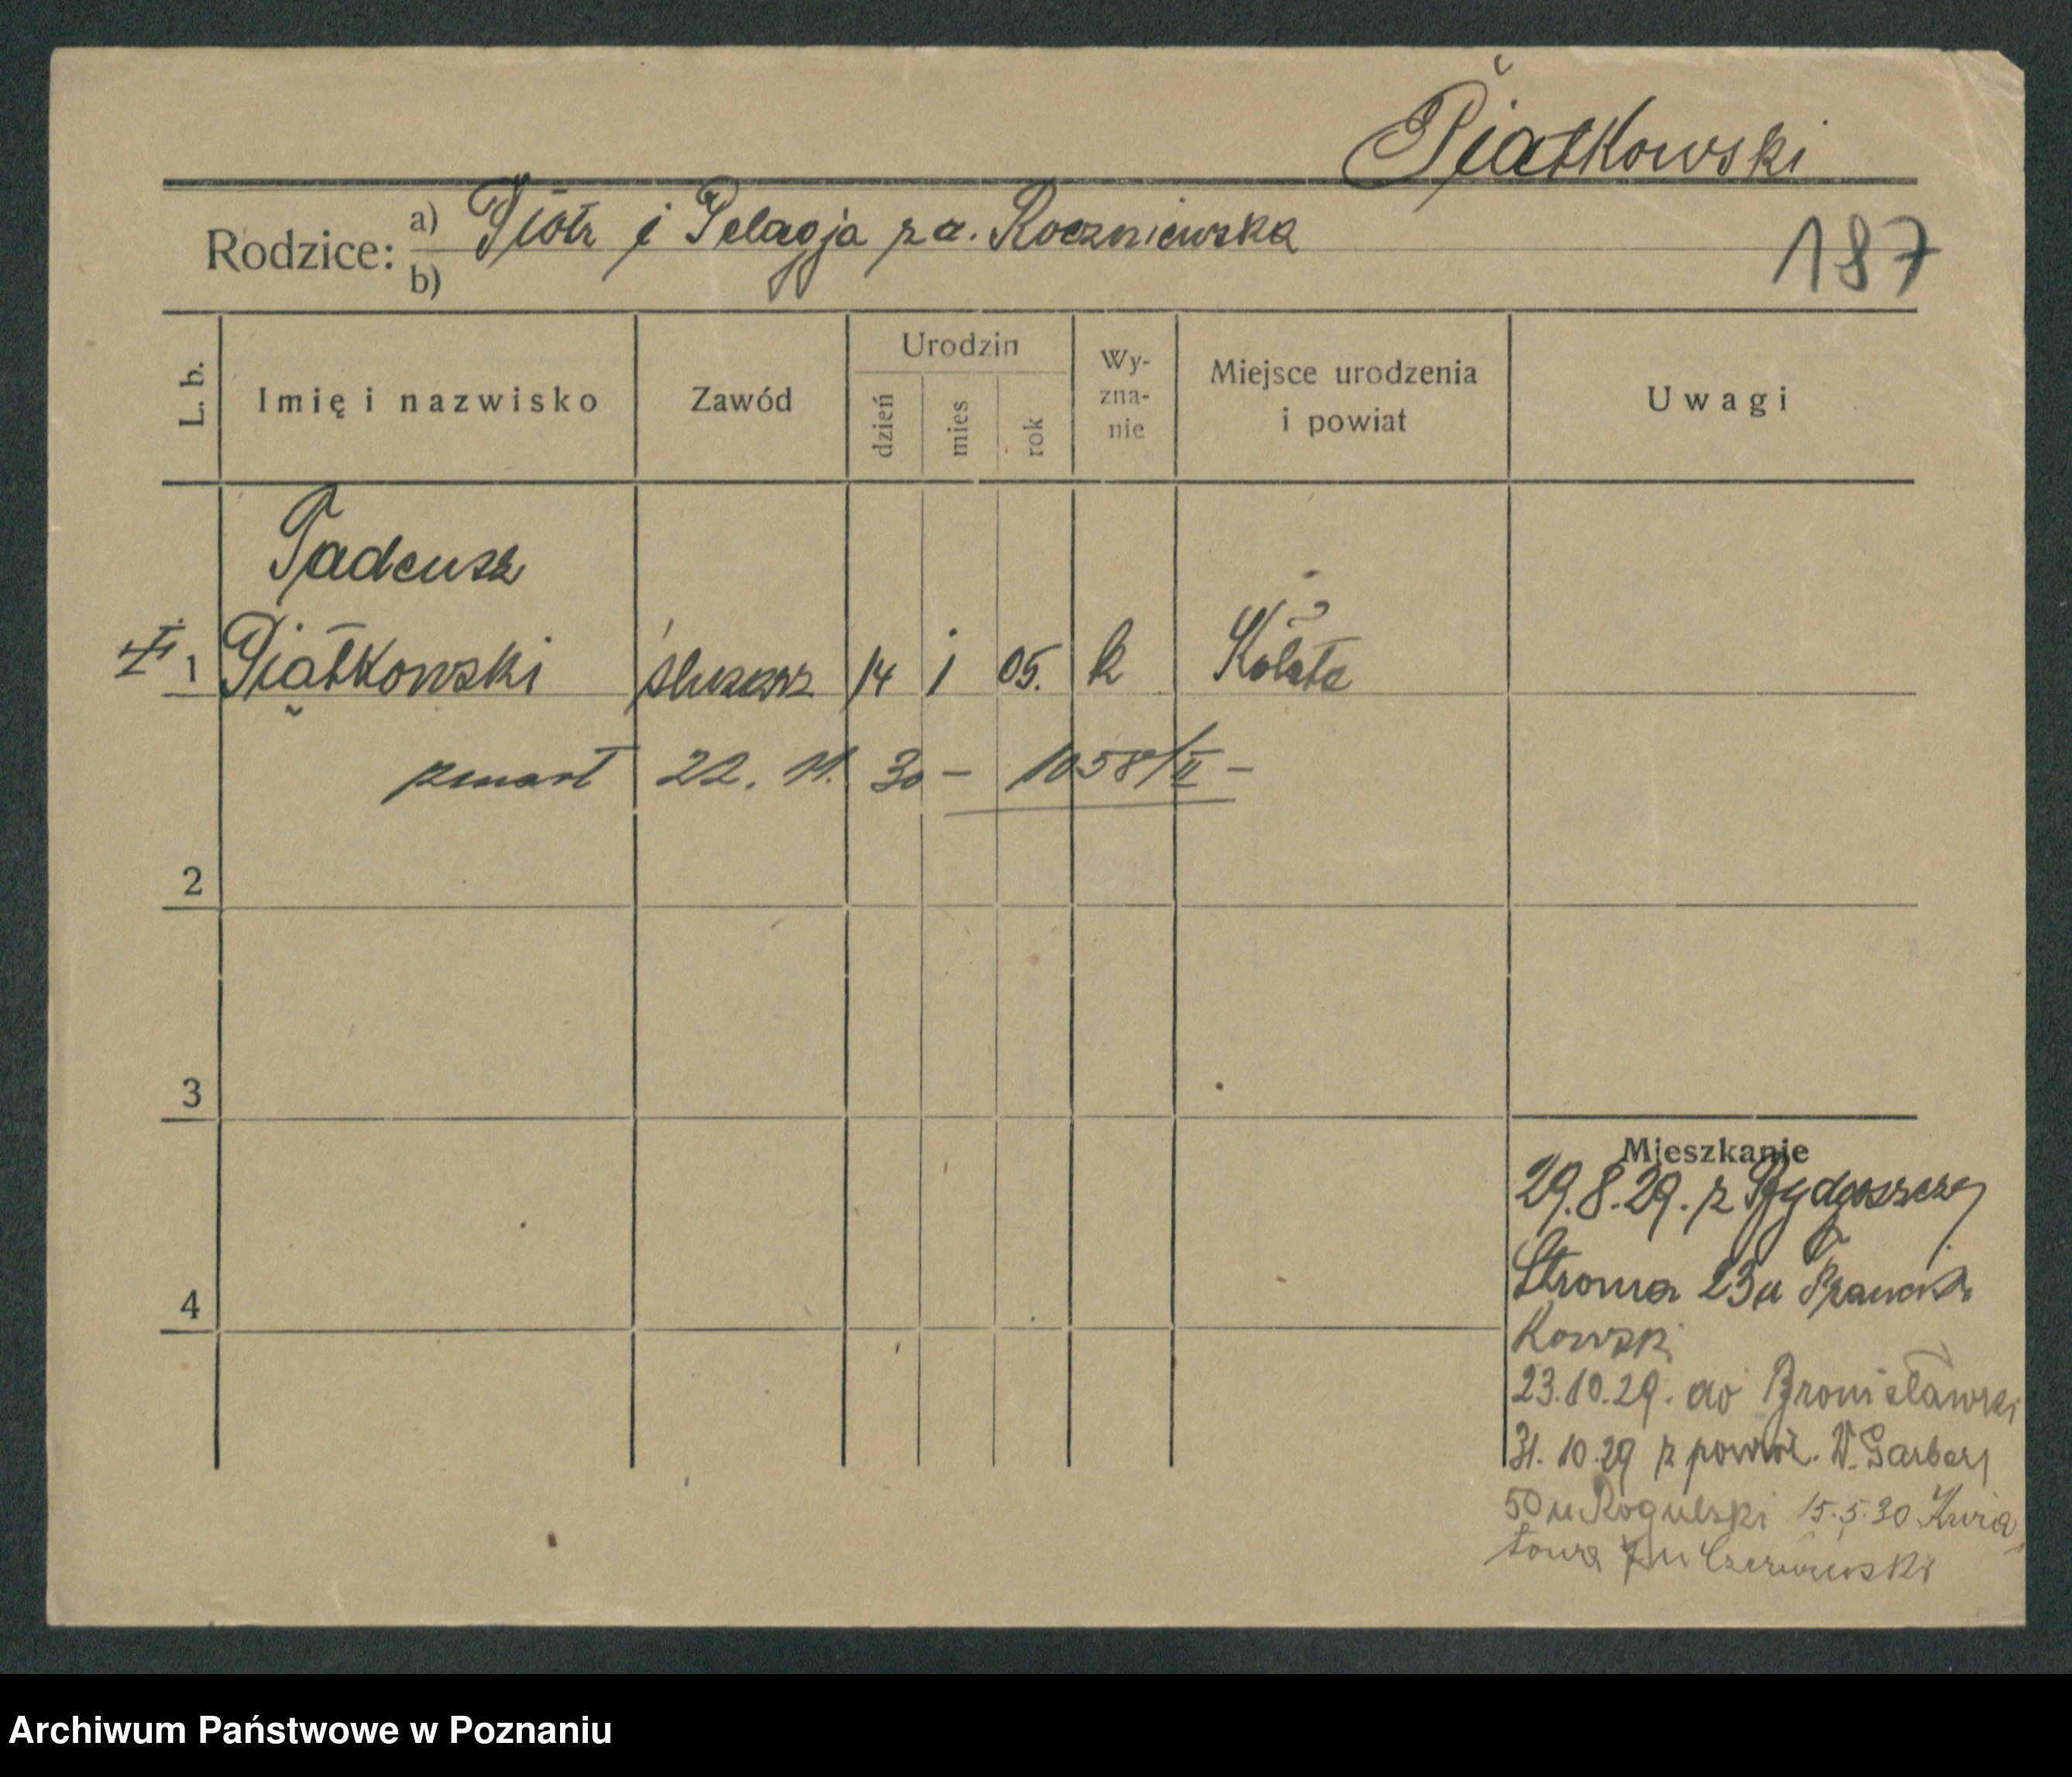 Piątkowski
Rodzice: a) Piotr i Pelagja z d. Roczniewska
b)
187
L. b.
Imię i nazwisko
Zawód
Urodzin
dzień
mies
rok
Wy-
zna-
nie
Miejsce urodzenia
i powiat
Uwagi
Tadeusz
1 Piątkowski ślusarz 14 1 05. k Kołata
zmarł 22. 11. 30 – 1058/II –
2
3
4
Mieszkanie
29.8.29. z Bydgoszczy
Stroma 23 u
kowski
23.10.29. do Bronisławki
31.10.29 z powrot. W. Garbary
50 u Rogulski 15.5.30 Kwia
towa 7 u Czerwiński
Archiwum Państwowe w Poznaniu